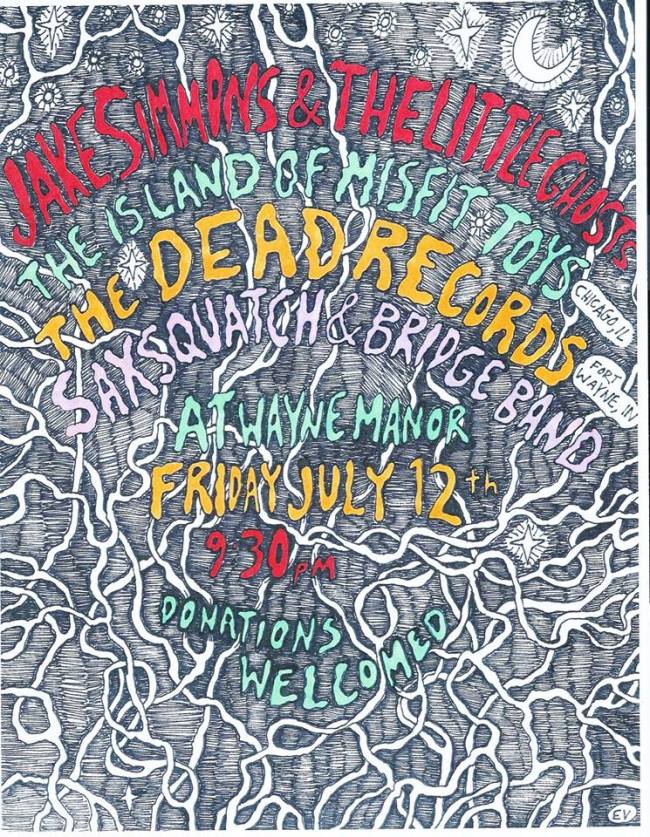 JAKE SIMMONS & THE LITTLE GHOSTS
THE ISLAND OF MISFIT TOYS
CHICAGO, IL
THE DEAD RECORDS
FORT
WAYNE, IN
SAXSQUATCH & BRIDGE BAND
AT WAYNE MANOR
FRIDAY JULY 12th
9:30 PM
DONATIONS
WELCOMED
EV